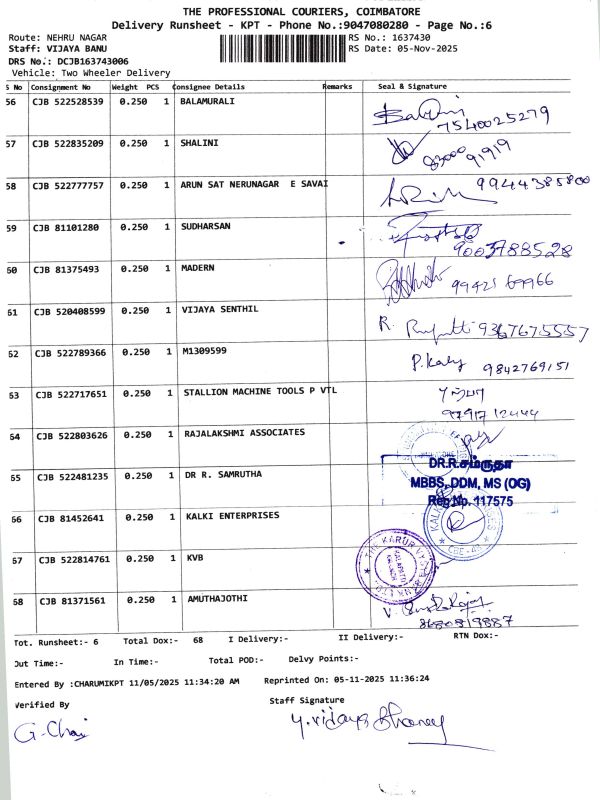 THE PROFESSIONAL COURIERS, COIMBATORE
Delivery Runsheet - KPT - Phone No.:9047080280 - Page No.:6
Route: NEHRU NAGAR
RS No.: 1637430
Staff: VIJAYA BANU
RS Date: 05-Nov-2025
DRS No.: DCJB163743006
Vehicle: Two Wheeler Delivery
S No Consignment No Weight PCS Consignee Details Remarks Seal & Signature
56 CJB 522528539 0.250 1 BALAMURALI
7540025279
57 CJB 522835209 0.250 1 SHALINI
91919
58 CJB 522777757 0.250 1 ARUN SAT NERUNAGAR E SAVAI
9944385800
59 CJB 81101280 0.250 1 SUDHARSAN
9003788528
60 CJB 81375493 0.250 1 MADERN
61 CJB 520408599 0.250 1 VIJAYA SENTHIL
R. 9367675557
62 CJB 522789366 0.250 1 M1309599
P. Kaly 9842769151
63 CJB 522717651 0.250 1 STALLION MACHINE TOOLS P VTL
97917 12444
64 CJB 522803626 0.250 1 RAJALAKSHMI ASSOCIATES
65 CJB 522481235 0.250 1 DR R. SAMRUTHA
DR.R.சம்ருதா
MBBS, DDM, MS (OG)
Reg.No. 117575
66 CJB 81452641 0.250 1 KALKI ENTERPRISES
67 CJB 522814761 0.250 1 KVB
THE KARUR VYSYA BANK LTD
68 CJB 81371561 0.250 1 AMUTHAJOTHI
8680819887
Tot. Runsheet:- 6 Total Dox:- 68 I Delivery:- II Delivery:- RTN Dox:-
Out Time:- In Time:- Total POD:- Delvy Points:-
Entered By :CHARUMIKPT 11/05/2025 11:34:20 AM Reprinted On: 05-11-2025 11:36:24
Verified By
Staff Signature
G. Chai
y. vijaya Bhanu